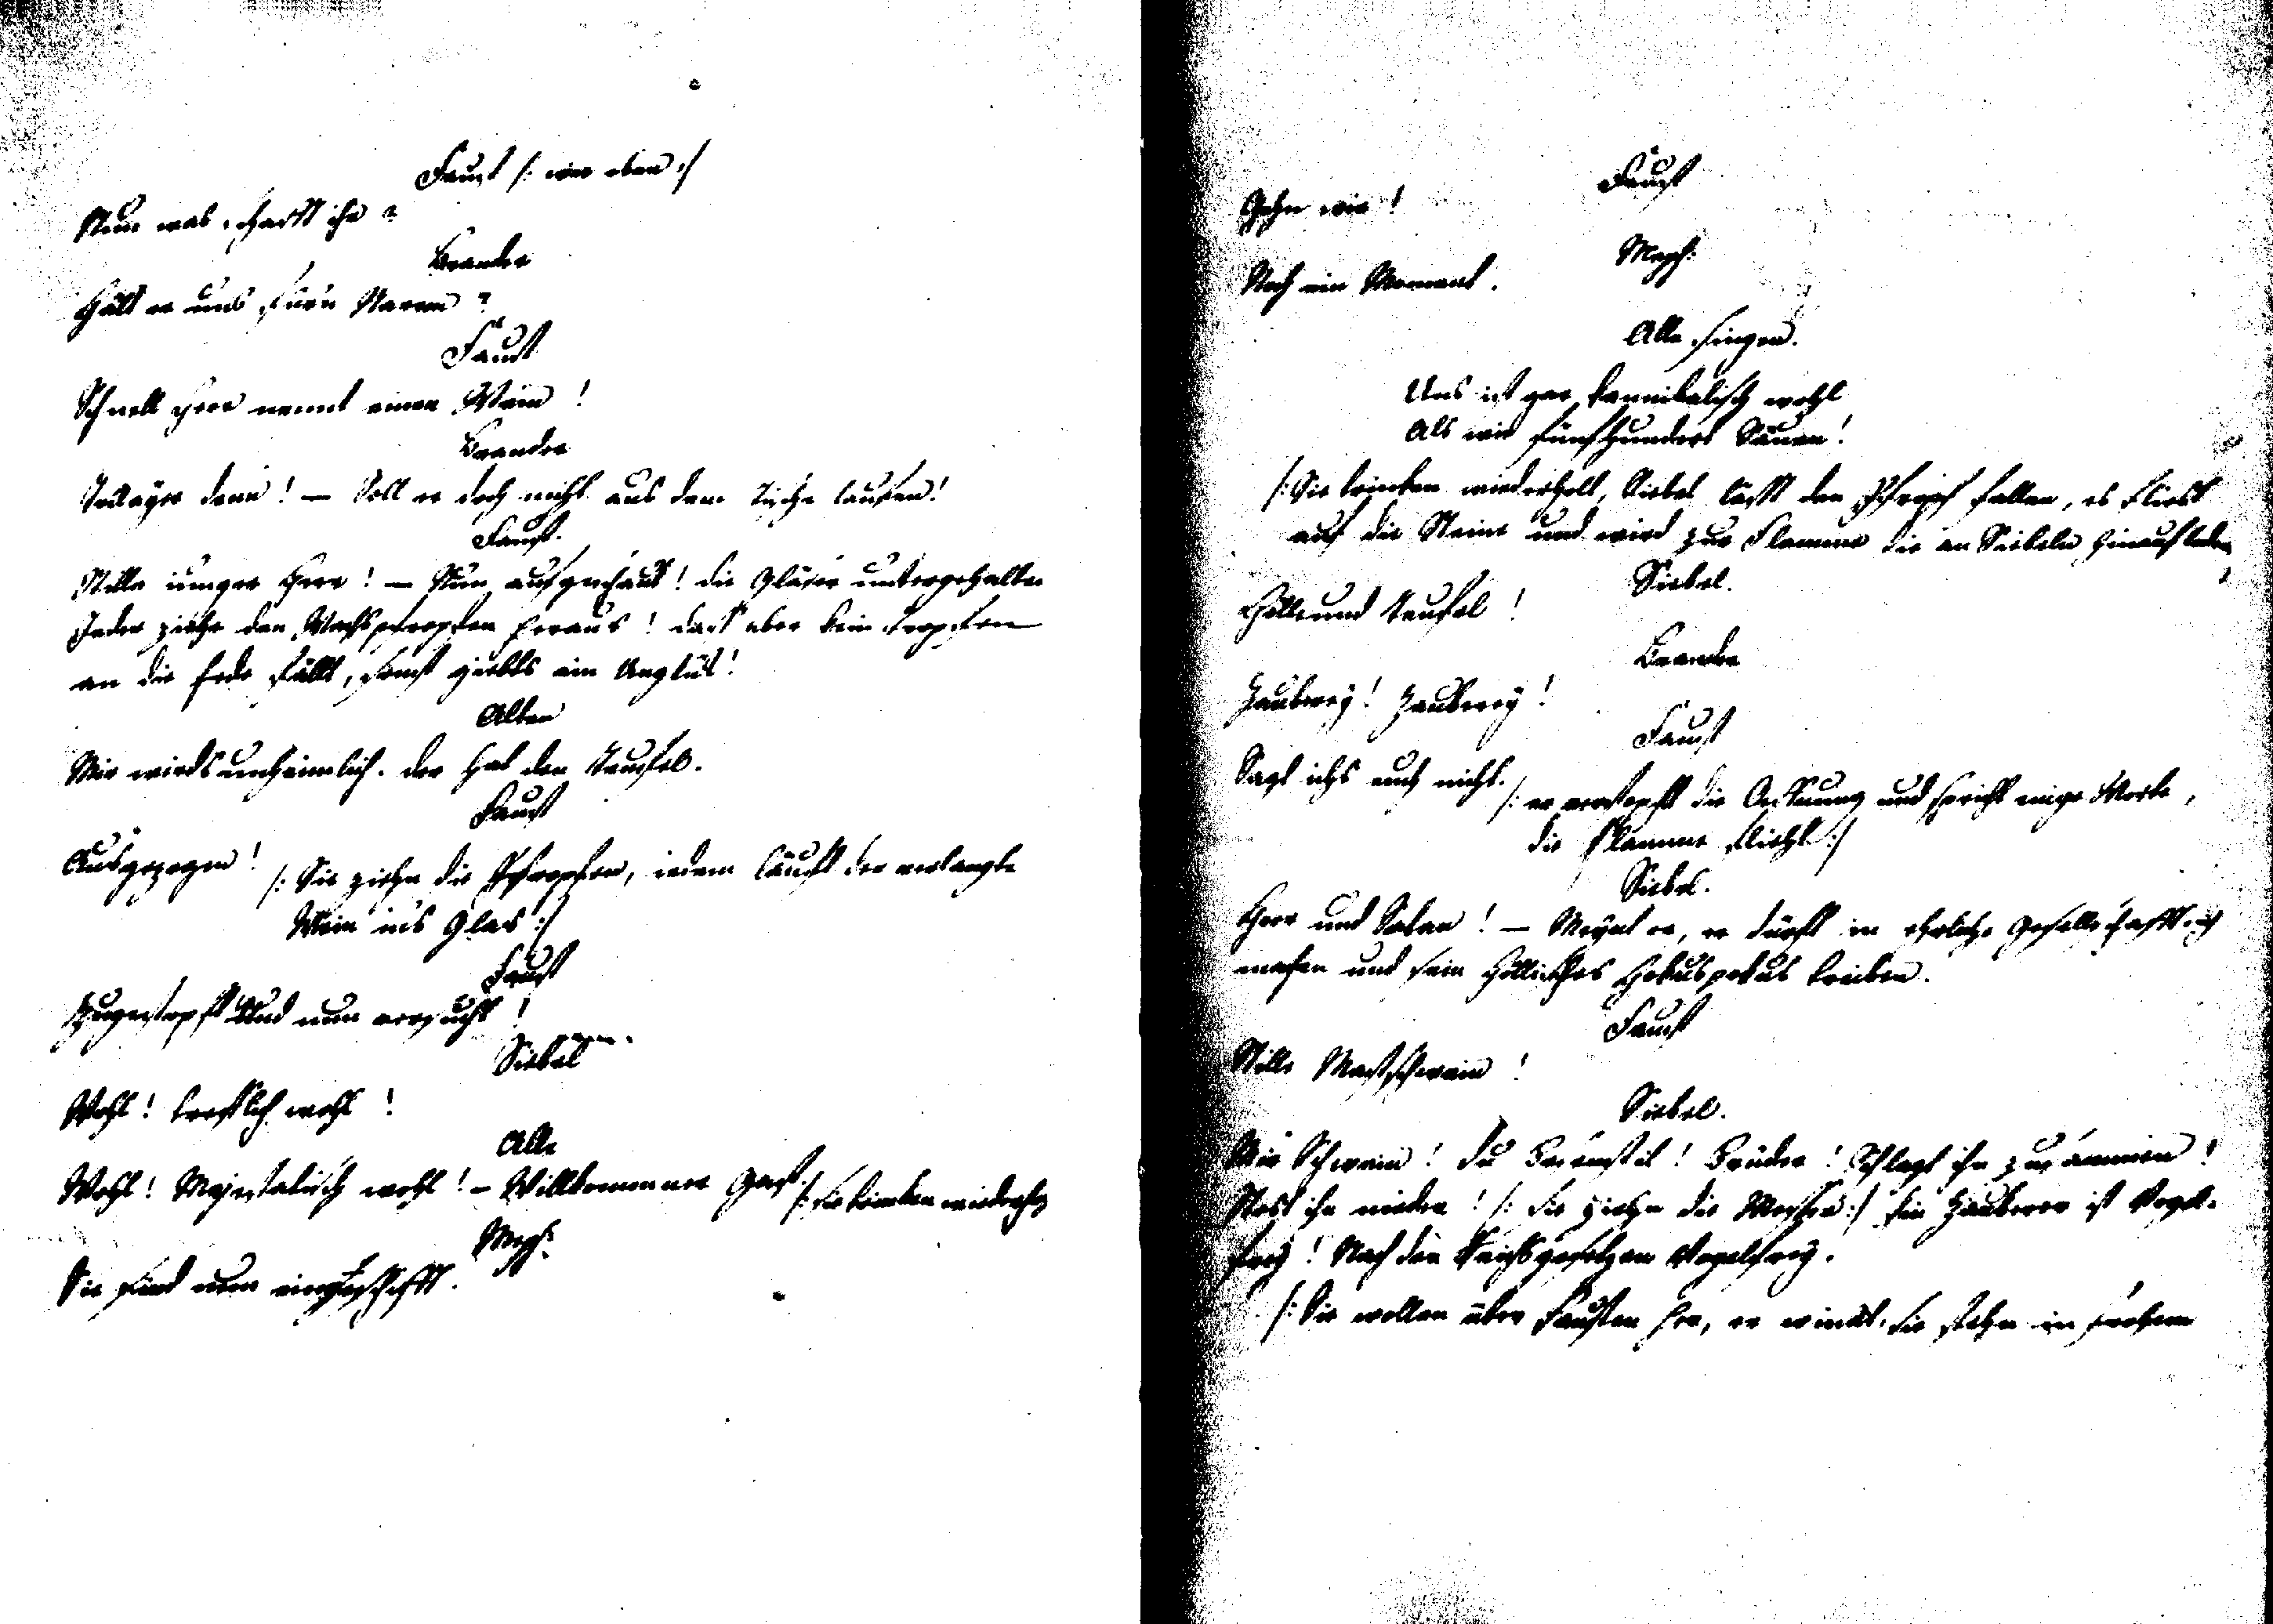 Faust /: wie oben :/
Nun was schafft ihr?
Brander
Hält er uns für'n Narren?
Faust
Schnell Herr nennt einen Wein!
Brander
Tokayer denn! — Soll er doch nicht aus dem Tische laufen!
Faust.
Stille iunger Herr! — Nun aufgeschaut! die Gläser untergehalten
Jeder ziehe den Wachspfropfen heraus! dass aber kein tropfen
an die Erde fällt, sonst giebts ein Unglück!
Alten
Mir wirds unheimlich. der hat den Teufel.
Faust
Ausgezogen!
/: Sie ziehn die Pfropfen, iedem läuft der verlangte
Wein ins Glas :/
Faust
Zugestopft Und nun versucht!
Siebel
Wohl! trefflich wohl!
Alle
Wohl! Majestätisch wohl! — Willkommner Gast.
/: sie trincken wiederholt
Meph:
Sie sind nun eingeschifft.
Faust
Gehn wir!
Meph:
Noch ein Moment.
Alle singen.
Uns ist gar kannibalisch wohl
Als wie fünfhundert Säuen!
/: Sie trincken wiederholt, Siebel lässt den Pfropf fallen, es fliest
auf die Steine und wird zur Flamme die an Siebeln hinauflodert
Siebel.
Hölle und Teufel!
Brander
Zauberey! Zauberey!
Faust
Sagt ichs euch nicht.
/: er verstopft die Oeffnung und spricht einige Worte,
die Flamme flieht :/
Siebel.
Herr und Satan! — Meynt er, er dürft in ehrliche Gesellschafft sich
machen und sein Höllisches Hokuspokus treiben.
Faust
Stille Mastschwein!
Siebel.
Mir Schwein! Du Besenstiel! Brüder! Schlagt ihn zusammen!
Stost ihn nieder! /: sie ziehn die Messer :/ Ein Zauberer ist Vogel-
frey! Nach den Reichsgesetzen Vogelfrey.
/: Sie wollen über Fausten her, er winckt, sie stehn in frohem